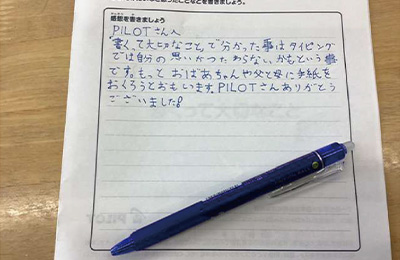 感想を書きましょう
PILOTさんへ
書くって大切なこと。で分かった事はタイピング
では自分の思いがつたわらない、かもという事
です。もっとおばあちゃんや父と母に手紙を
おくろうとおもいます。PILOTさんありがとう
ございました!